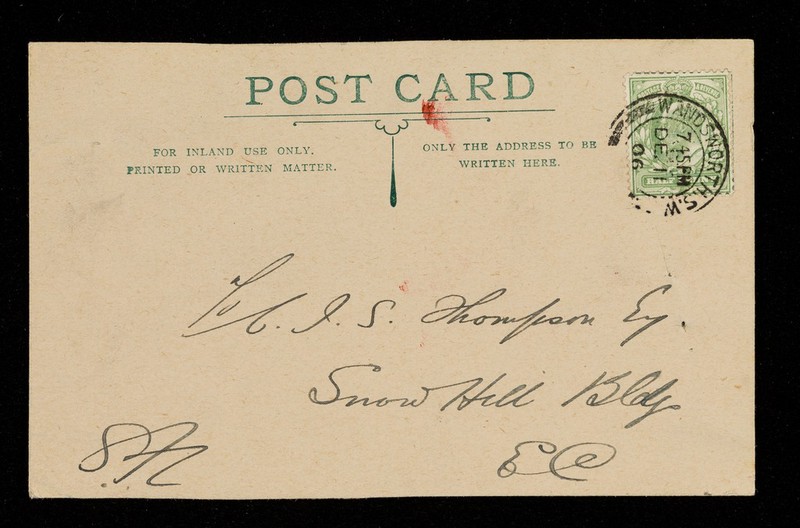 POST CARD
FOR INLAND USE ONLY.
PRINTED OR WRITTEN MATTER.
ONLY THE ADDRESS TO BE
WRITTEN HERE.
WANDSWORTH, S.W
7.45PM
DE 11
06
J. S. Thompson Esq.
Snow Hill Bldgs
E C